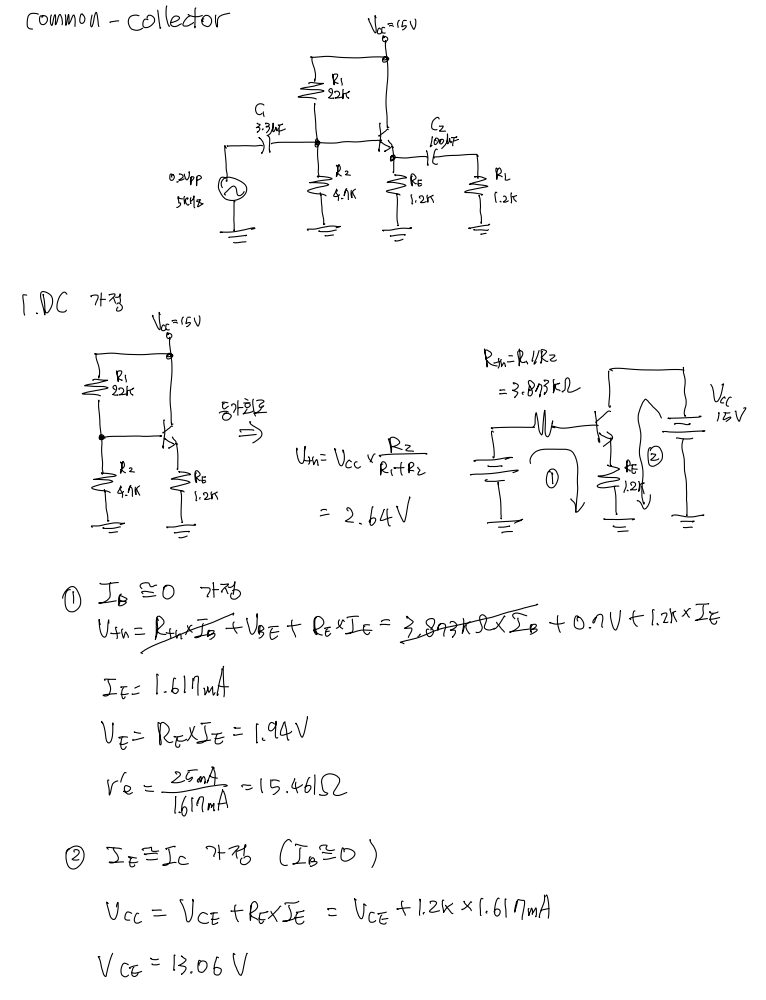 common-collector
Vcc=15V
R1
22K
C1
3.3μF
C2
100μF
0.2Vpp
5KHz
R2
4.7K
RE
1.2K
RL
1.2K
1.DC 가정
Vcc=15V
R1
22K
R2
4.7K
RE
1.2K
등가회로
⇒
Vth = Vcc × R2/(R1+R2)
= 2.64V
Rth=R1//R2
= 3.873kΩ
Vcc
15V
RE
1.2K
①
②
① IB ≅ 0 가정
Vth = Rth×IB + VBE + RE×IE = 3.873kΩ×IB + 0.7V + 1.2K×IE
IE = 1.617mA
VE = RE×IE = 1.94V
r'e = 25mA/1.617mA = 15.461Ω
② IE≅IC 가정 (IB≅0)
VCC = VCE + RE×IE = VCE + 1.2K × 1.617mA
VCE = 13.06 V